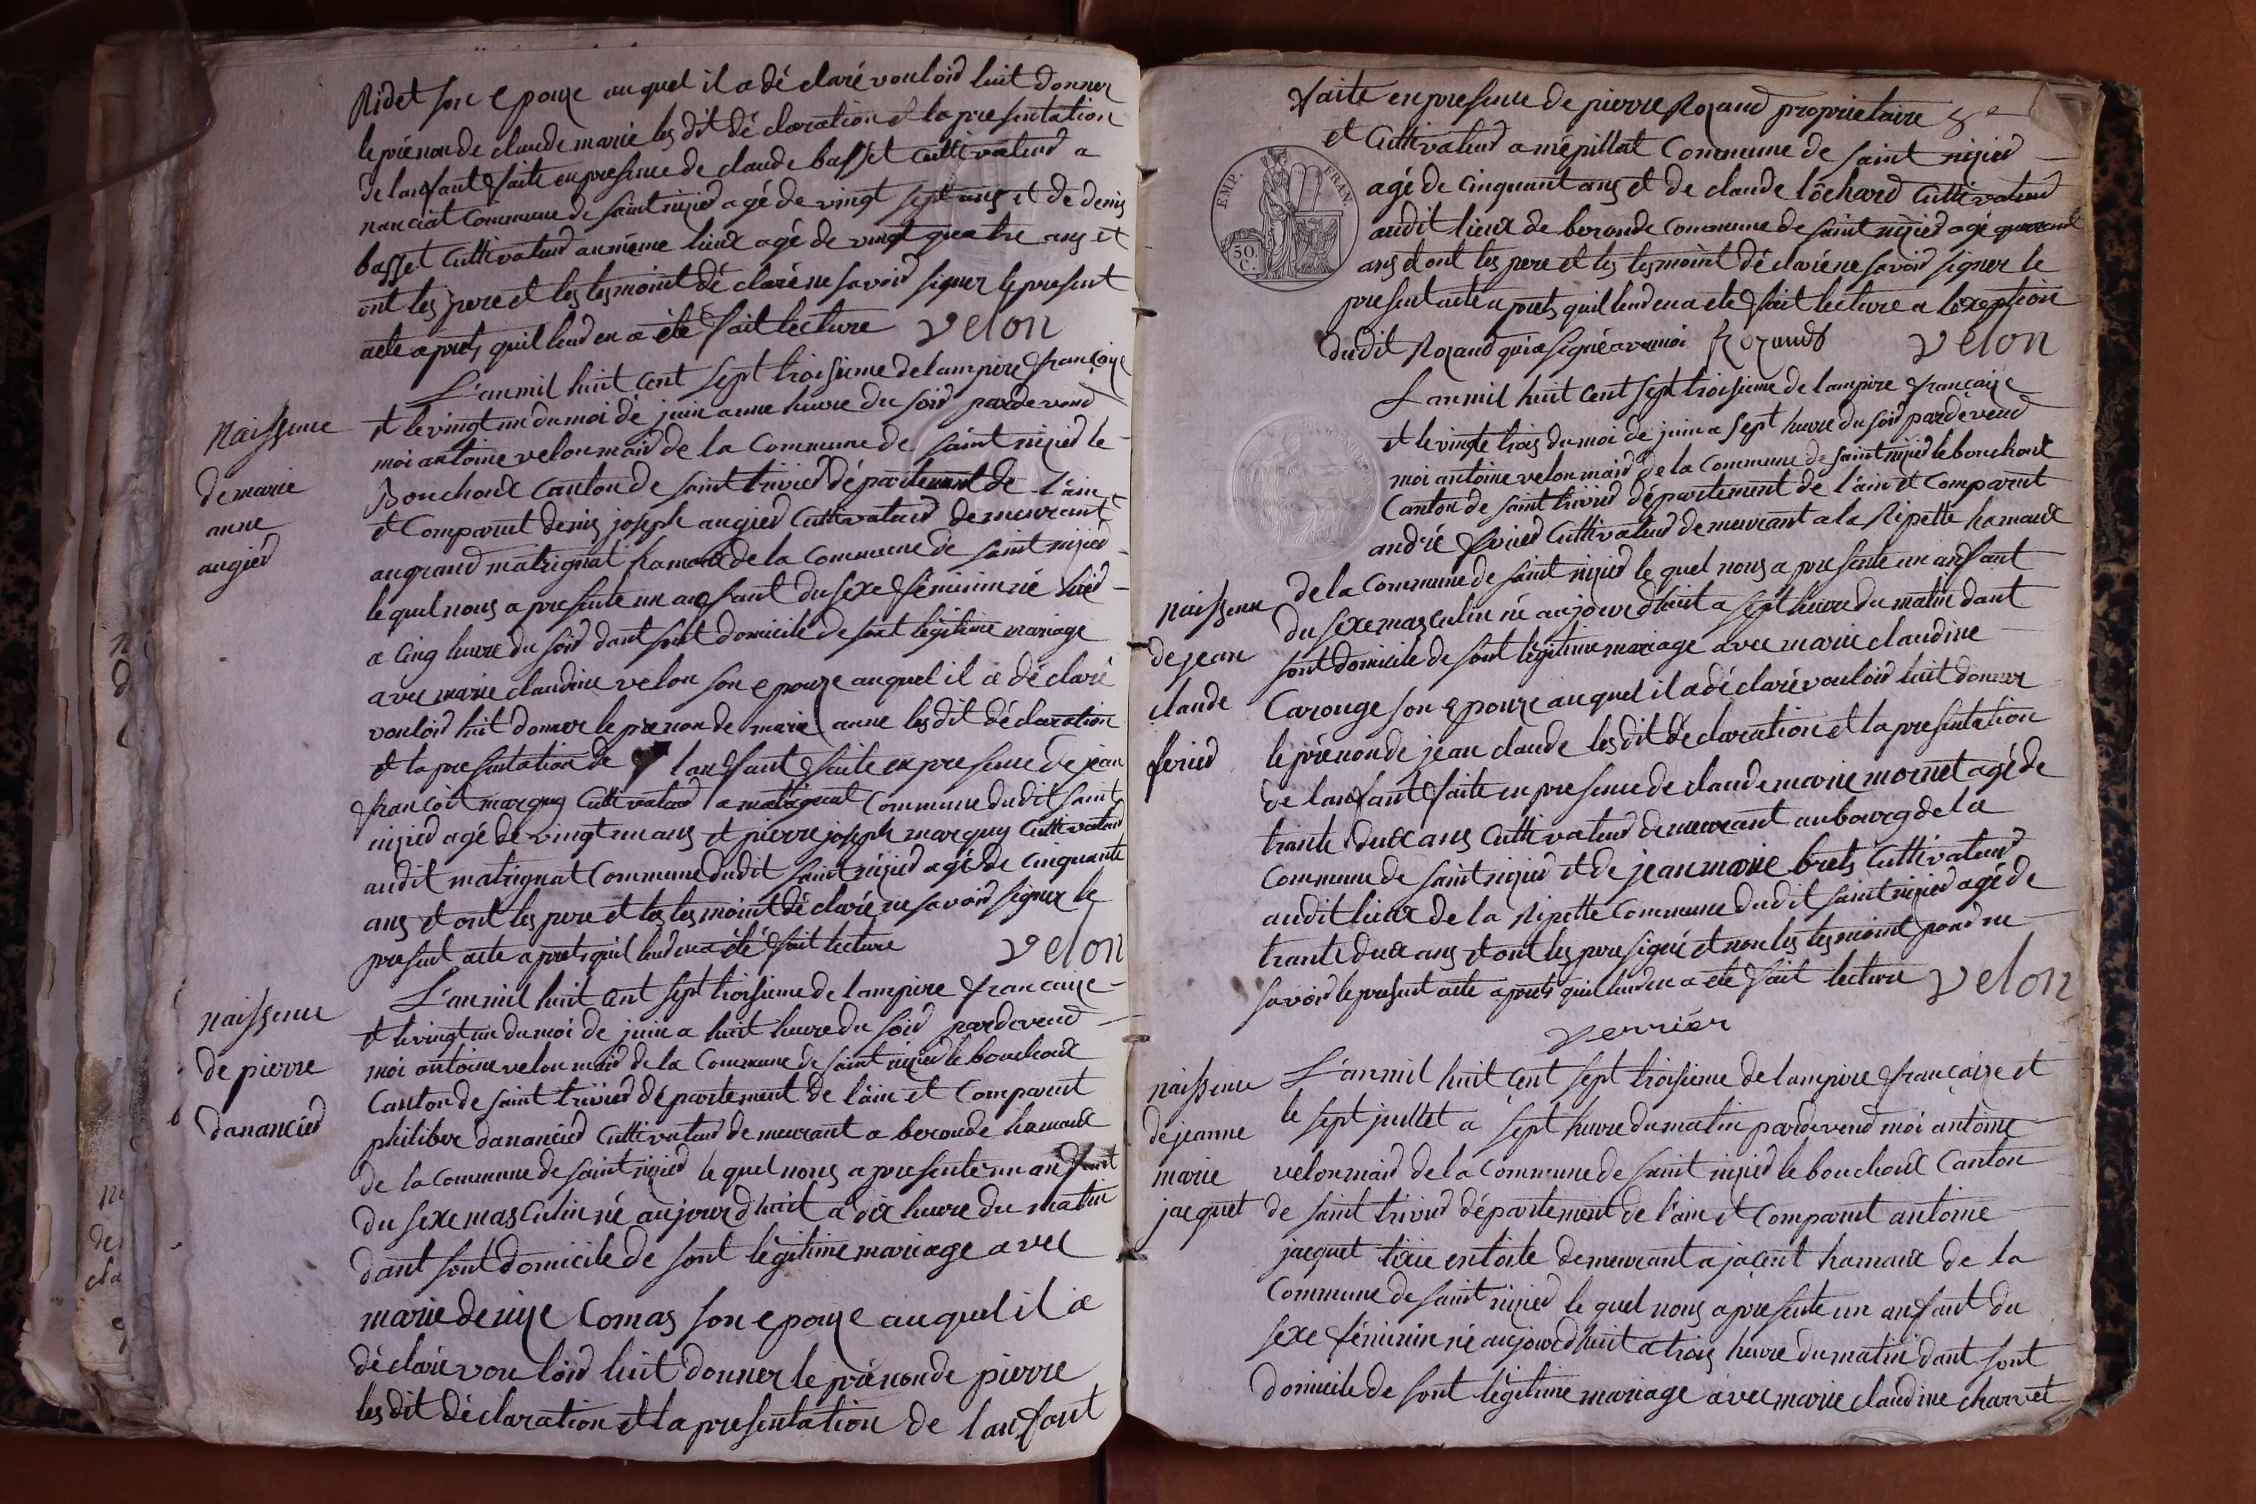 Ridet son epouze au quel il a dé claré vouloir luit donner
le prénon de claude marie les dit dé claration et la presentation
de lanfant faite en presence de claude basset cultivateur a
nanciat Commune de saint nizier agé de vingt sept ans et de denis
basset Cultivateur au même lieux agé de vingt quatre ans et
ont les pere et les tesmoint dé claré ne savoir signer le present
acte aprets quil leur en a été fait lecture velon
L'an mil huit cent sept troisieme de lampire françaize
Naissence
de marie
anne
augier
et le vingt un du moi de juin a une heure du soir pardevend
moi antoine velon maire de la Commune de saint nizier le
Bouchoux Canton de saint trivier département de l'ain
et Comparut denis joseph augier Cultivateur demeurant
au grand matrignat hamaux de la Commune de saint nizier
le quel nous a presente un anfant du sexe féminin né hier
a cinq heure du soir dant sont domicile de sont légitime mariage
avec marie claudine velon son epouze auquel il a dé claré
vouloir luit donner le prenon de marie anne les dit dé claration
et la presentation de lanfant faite en presence de jean
françoit marquy Cultivateur a matrignat Commune dudit saint
nizier agé de vingt un ans et pierre joseph marquy Cultivateur
audit matrignat Commune dudit saint nizier agé de cinquante
ans et ont les pere et les tesmoint dé claré ne savoir signer le
present acte aprets quil leur en a été fait lecture velon
L'an mil huit cent sept troisieme de lampire francaize
naissence
de pierre
dananciér
et le vingt un du moi de juin a huit heure du soir pardevend
moi antoine velon maire de la Commune de saint nizier le bouchoux
Canton de saint trivier département de l'ain et Comparut
philiber danancier Cultivateur demeurant a beronde hamaux
de la Commune de saint nizier le quel nous a presente un anfant
du sexe masculin né aujourd huit a dix heure du matin
dant sont domicile de sont légitime mariage avec
marie denize Comas son epouze auquel il a
dé claré vou loir luit donner le prénon de pierre
les dit dé claration et la presentation de lanfant
faite en presence de pierre Rozand proprietaire
et Cultivateur a mépillat Commune de saint nizier
agé de cinquant ans et de claude lôchard Cultivateur
audit lieux de beronde Commune de saint nizier agé quarante
ans et ont les pere et les tesmoint dé claré ne savoir signer le
present acte aprets quil leur en a ete fait lecture a lexeption
dudit Rozand qui a signé avec moi Rozand velon
EMP. FRAN.
50 C.
L an mil huit cent sept troisieme de lampire française
et le vingte trois du moi de juin a sept heure du soir pardevend
moi antoine velon maire de la Commune de saint nizier le bouchoux
Canton de saint trivier département de l'ain et Comparut
andré ferier Cultivateur demeurant a la Ripette hamaux
Naissence
de jean
claude
ferier
de la Commune de saint nizier le quel nous a presente un anfant
du sexe masculin né aujourdhuit a sept heure du matin dant
sont domicile de sont légitime mariage avec marie claudine
Carouge son epouze auquel il a dé claré vouloir luit donner
le prénon de jean claude les dit dé claration et la presentation
de lanfant faite en presence de claude marie mornet agé de
trante deux ans Cultivateur demeurant au bourg de la
Commune de saint nizier et de jean marie brets Cultivateur
audit lieux de la Ripette Commune dudit saint nizier agé de
trante deux ans et ont les pere signé et non les tesmoint pour ne
savoir le present acte aprets quil leur en a été fait lecture velon
verrier
naissence
de jeanne
marie
jacquet
L'an mil huit cent sept troisieme de lampire française et
le sept juillet a sept heure du matin pardevend moi antoine
velon maire de la Commune de saint nizier le bouchoux Canton
de saint trivier département de l'ain et Comparut antoine
jacquet tixie en toile demeurant a jacent hamaux de la
Commune de saint nizier le quel nous a presente un anfant du
sexe féminin né aujourdhuit a trois heure du matin dant sont
domicile de sont légitime mariage avec marie claudine charvet